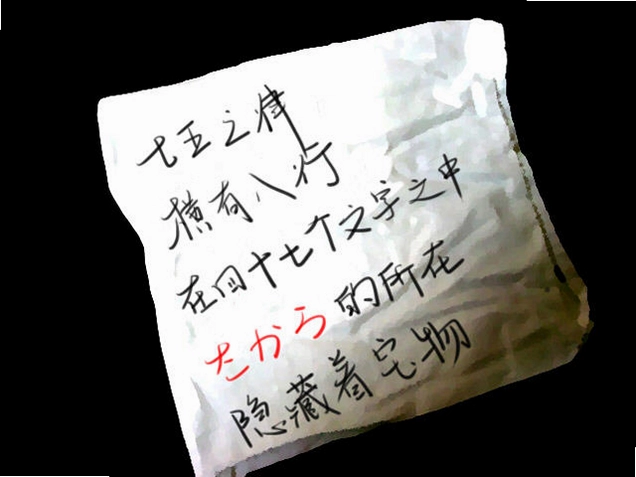 七五之律
横有八行
在四十七个文字之中
たから的所在
隐藏着宝物